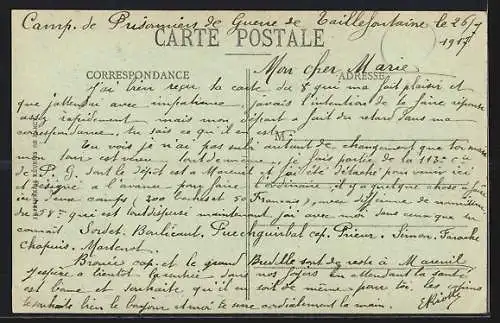 Camp. de Prisonniers de Guerre de Taillefontaine le 26/7
1917
CARTE POSTALE
CORRESPONDANCE
ADRESSE
Mon cher Marie
j'ai bien reçu la carte du 8 qui m'a fait plaisir et
que j'attendai avec impatience, j'avais l'intention de te faire réponse
assez rapidement mais mon départ a fait du retard dans ma
correspondance, tu sais ce qu'il en est.
M
Tu vois je n'ai pas subi autant de changement que toi mais
mon tour est venu tout de même, je fais partie de la 113e Cie
de P. G. dont le dépôt est a Mareuil et j'ai été détaché pour venir ici
et désigné a l'avance pour faire l'ordinaire, il y a quelque chose a faire
ici deux camps (300 boches et 50 Français), avec
du 58e qui est tout dispersé maintenant j'ai avec moi sans ceux que tu
connait Sordet. Puechguirbal cap. Prieur. Simon.
Chapuis.
cap. et le grand reste a Mareuil
J'espère a bientôt dans nos foyers En attendant la santé
est bonne et souhaite qu'il en soit de même pour toi. les copains
te souhaite bien le bonjour et moi te serre cordialement la main.